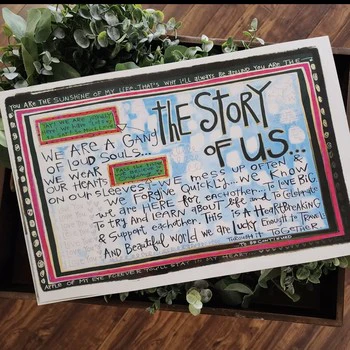 YOU ARE THE SUNSHINE OF MY LIFE. THAT'S WHY I'LL ALWAYS BE AROUND YOU ARE THE
the STORY
OF US...
WE ARE A GANG
OF LOUD SOULS...
WE WEAR
OUR HEARTS
ON OUR SLEEVES. WE MESS UP OFTEN &
WE FORGIVE QUICKLY... WE KNOW
WE ARE HERE FOR EACHOTHER... TO LOVE BIG.
TO TRY AND LEARN ABOUT LIFE and TO CELEBRATE
& SUPPORT EACHOTHER. THIS IS A HEARTBREAKING
AND BEAUTIFUL WORLD WE ARE LUCKY ENOUGH TO TRAVEL
THROUGH IT TOGETHER
TO BE CONTINUED
APPLE OF MY EYE FOREVER YOU'LL STAY IN MY HEART